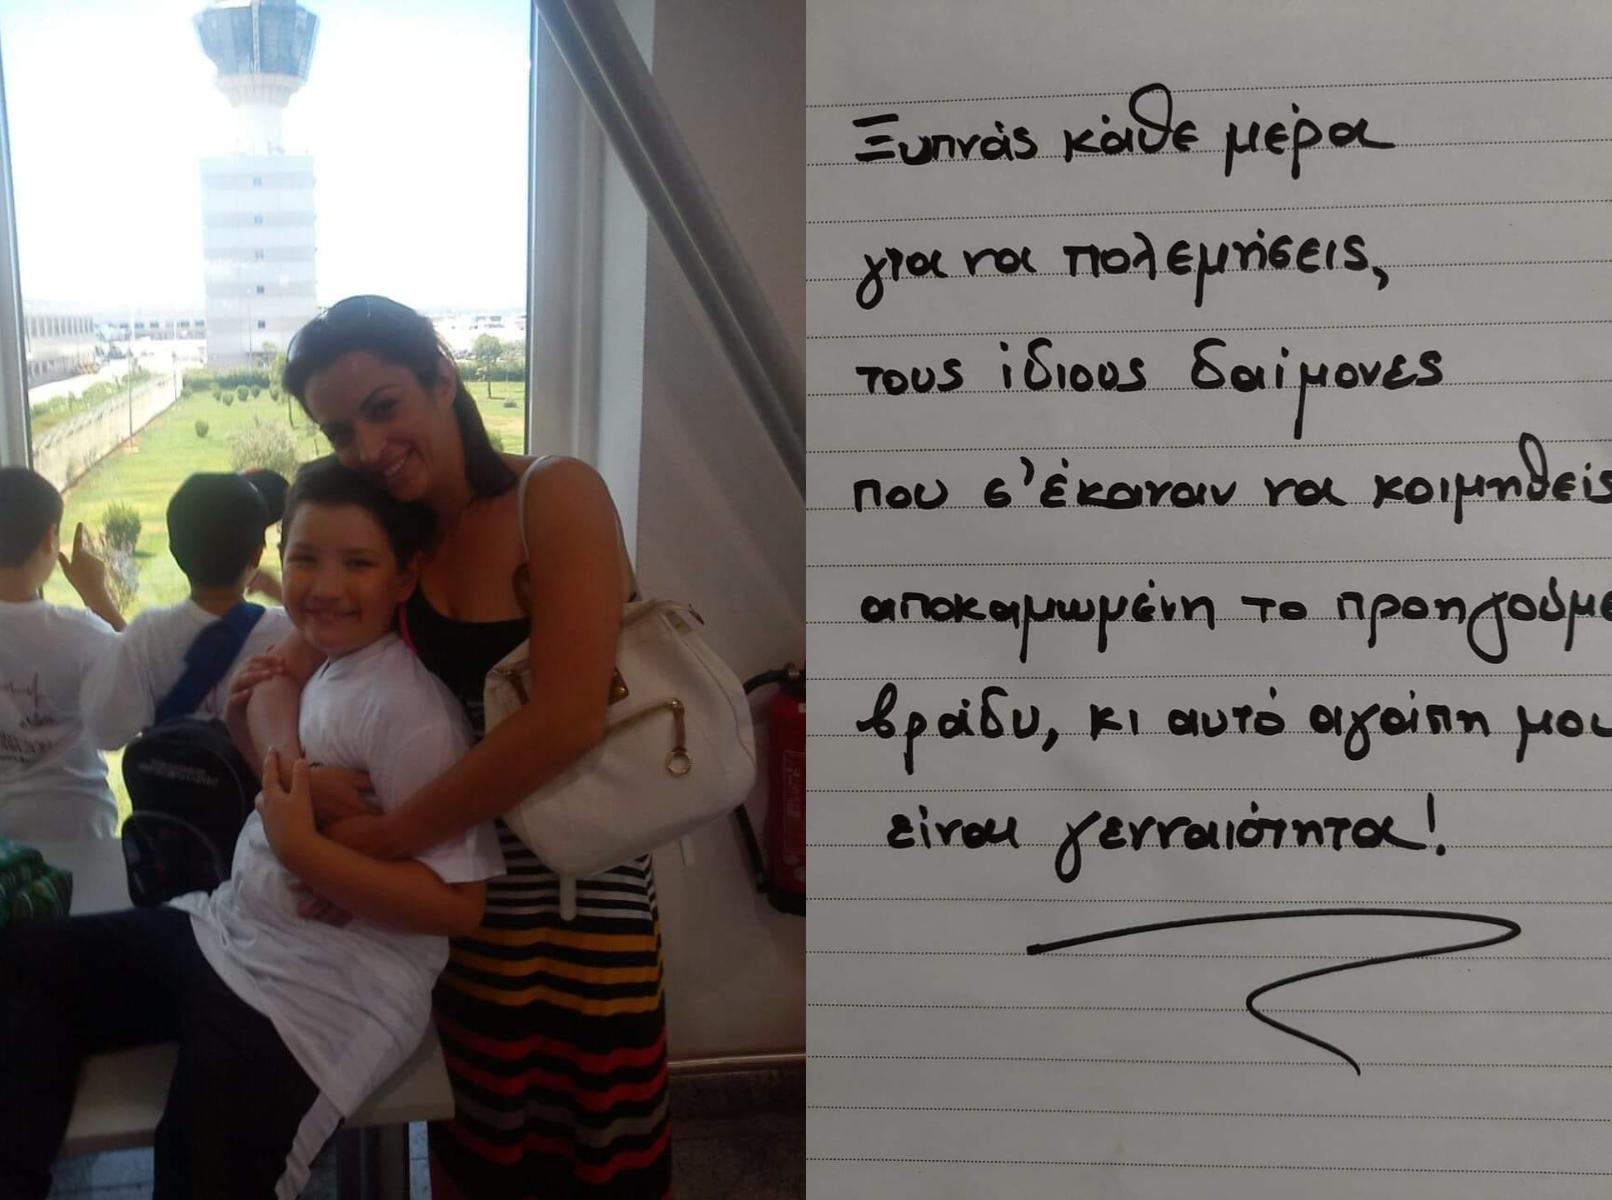 Ξυπνάς κάθε μέρα
για να πολεμήσεις,
τους ίδιους δαίμονες
που σ'έκαναν να κοιμηθείς
αποκαμωμένη το προηγούμε
βράδυ, κι αυτό αγάπη μου
είναι γενναιότητα!